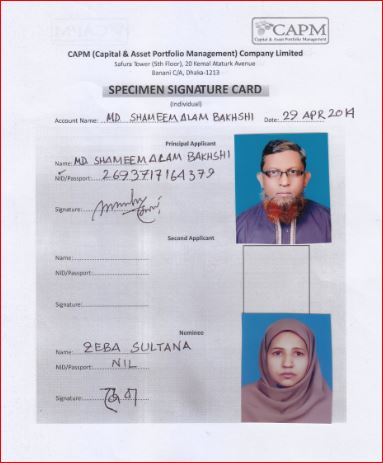 CAPM
Capital & Asset Portfolio Management
CAPM (Capital & Asset Portfolio Management) Company Limited
Safura Tower (5th Floor), 20 Kemal Ataturk Avenue
Banani C/A, Dhaka-1213
SPECIMEN SIGNATURE CARD
(Individual)
Account Name: MD. SHAMEEM ALAM BAKHSHI Date: 29 APR 2014
Principal Applicant
Name: MD. SHAMEEM ALAM BAKHSHI
NID/Passport: 2693717164379
Signature:
Second Applicant
Name:
NID/Passport:
Signature:
Nominee
Name: ZEBA SULTANA
NID/Passport: NIL
Signature: